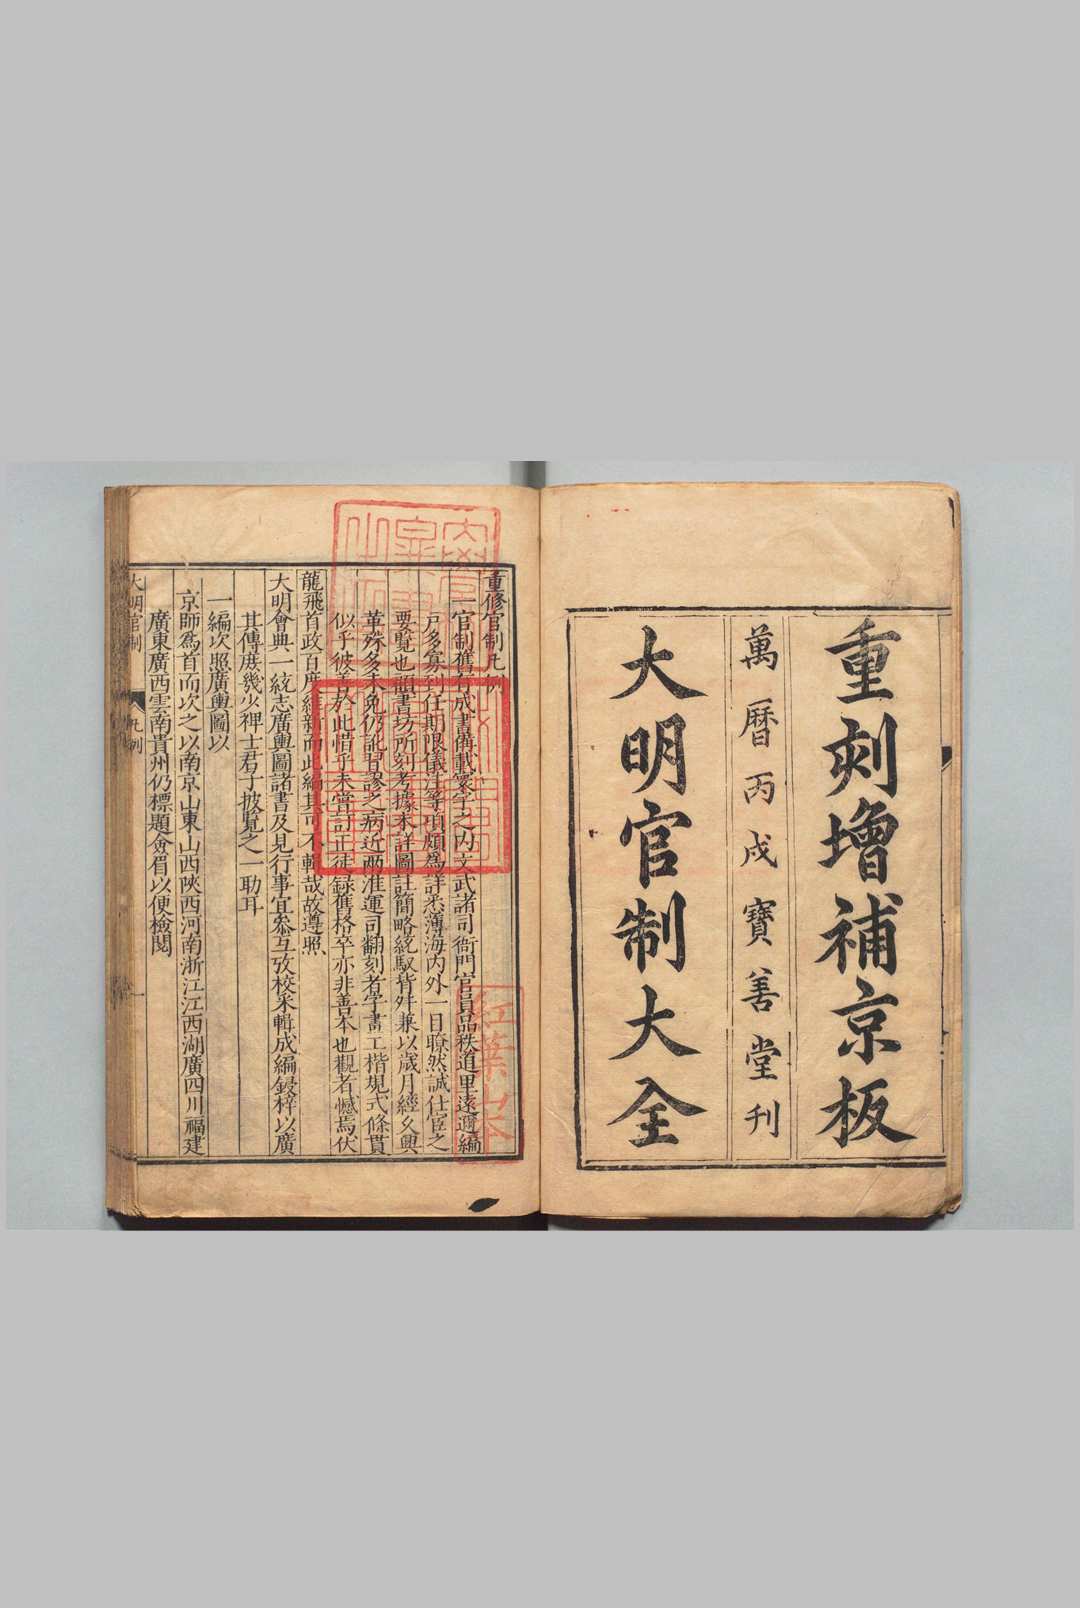 重刻增補京板
萬曆丙戌寶善堂刊
大明官制大全
重修官制凡例
一官制舊有成書備載寰宇之內文武諸司衙門官員品秩道里遠邇編
戶多寡到任期限儀注等項頗為詳悉薄海內外一目瞭然誠仕宦之
要覽也顧書坊所刻考據未詳圖註簡略統馭皆舛兼以歲月經久興
革殊多未免仍訛習謬之病近兩淮運司翻刻者字畫工楷規式條貫
似乎彼善於此惜乎未嘗訂正徒録舊格卒亦非善本也觀者憾焉伏
龍飛首政百度維新而此編其可不輯哉故遵照
大明會典一統志廣輿圖諸書及見行事宜叅互攷校采輯成編鋟梓以廣
其傳庶幾少裨士君子披覽之一助耳
一編次照廣輿圖以
京師為首而次之以南京山東山西陝西河南浙江江西湖廣四川福建
廣東廣西雲南貴州仍標題僉眉以便檢閱
大明官制 凡例 一